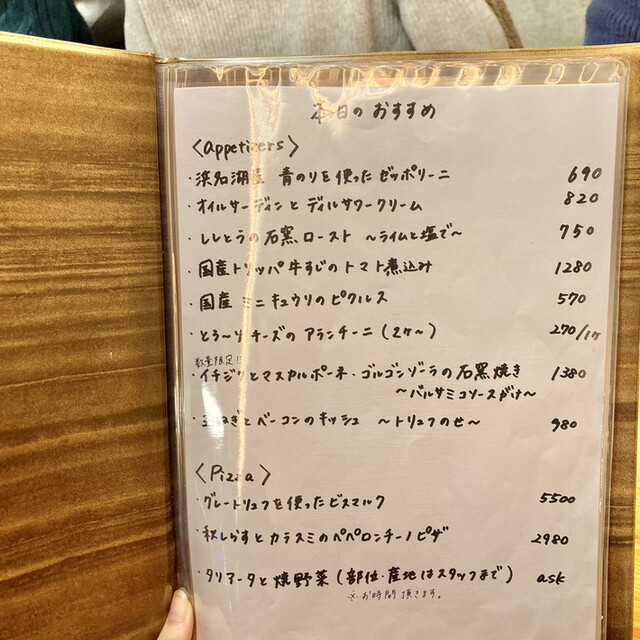 本日のおすすめ
〈appetizers〉
・浜名湖産 青のりを使ったゼッポリーニ 690
・オイルサーディンとディルサワークリーム 820
・ししとうの石窯ロースト ~ライムと塩で~ 750
・国産トリッパ牛すじのトマト煮込み 1280
・国産ミニキュウリのピクルス 570
・とろ~りチーズのアランチーニ(2ケ~) 270/1ケ
数量限定!!
・イチジクとマスカルポーネ・ゴルゴンゾーラの石窯焼き 1380
~バルサミコソースがけ~
・玉ねぎとベーコンのキッシュ ~トリュフのせ~ 980
〈Pizza〉
・グレートリュフを使ったビスマルク 5500
・秋しらすとカラスミのペペロンチーノピザ 2980
・タリアータと焼野菜(部位・産地はスタッフまで) ask
※お時間頂きます。